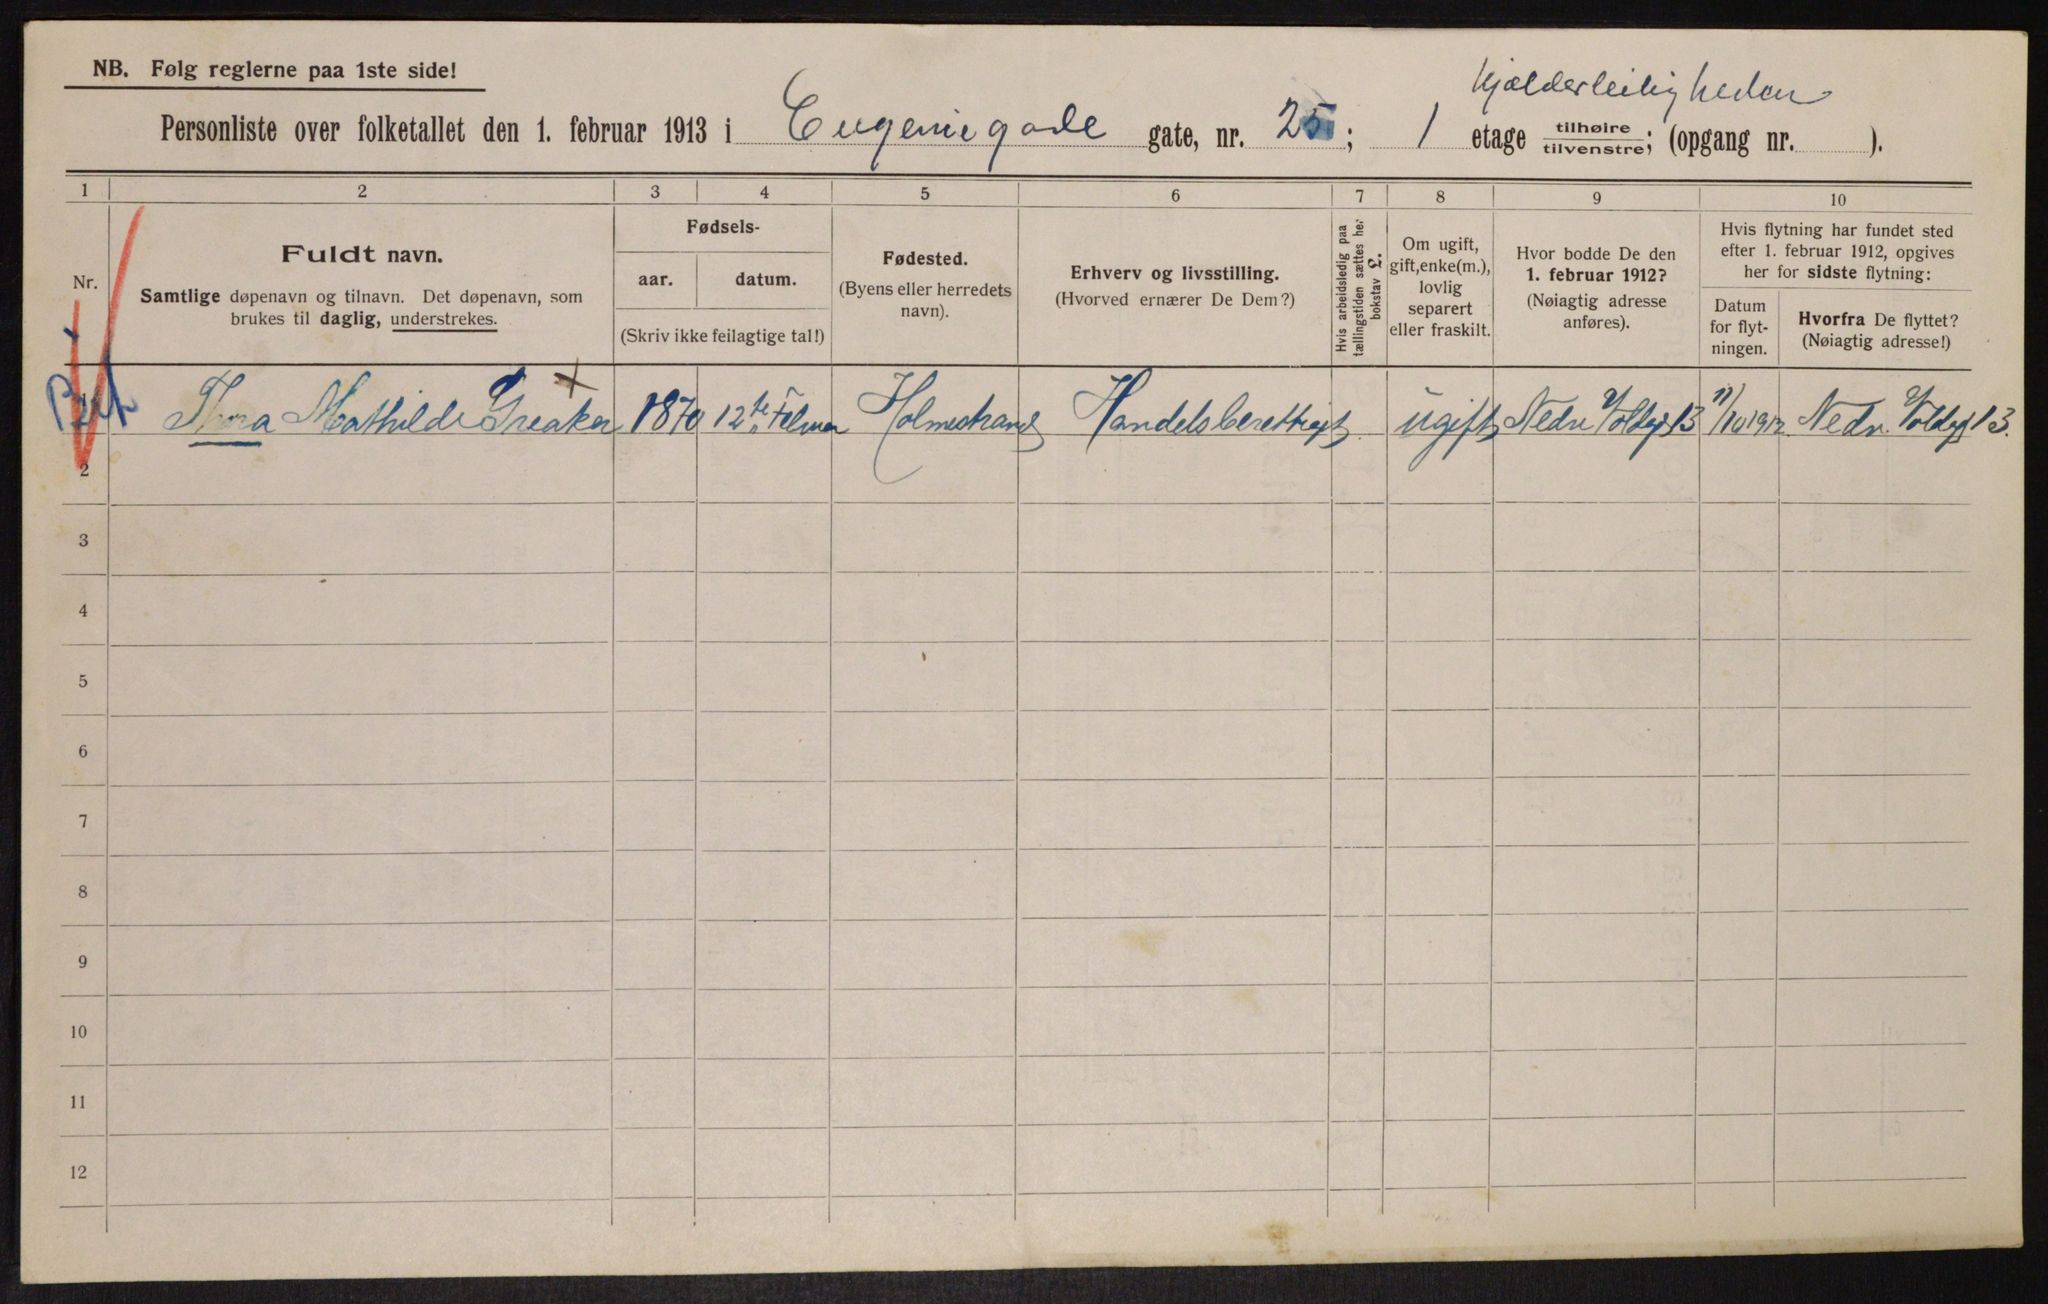 NB. Følg reglerne paa 1ste side!
Kjælderleiligheden
Personliste over folketallet den 1. februar 1913 i Eugeniegade gate, nr. 25; 1 etage tilhøire tilvenstre; (opgang nr. ).
1 2 3 4 5 6 7 8 9 10
Nr.
Fuldt navn.
Samtlige døpenavn og tilnavn. Det døpenavn, som
brukes til daglig, understrekes.
Fødsels-
aar. datum.
(Skriv ikke feilagtige tal!)
Fødested.
(Byens eller herredets
navn).
Erhverv og livsstilling.
(Hvorved ernærer De Dem?)
Hvis arbeidsledig paa
tællingstiden sættes her
bokstav L.
Om ugift,
gift, enke(m.),
lovlig
separert
eller fraskilt.
Hvor bodde De den
1. februar 1912?
(Nøiagtig adresse
anføres).
Hvis flytning har fundet sted
efter 1. februar 1912, opgives
her for sidste flytning:
Datum
for flyt-
ningen.
Hvorfra De flyttet?
(Nøiagtig adresse!)
Thora Mathilde Greaker 1870 12te Februar Holmestrand Handelsberettiget ugift Nedr Voldgt 13 11/10 1912 Nedr. Voldgt 13.
2
3
4
5
6
7
8
9
10
11
12